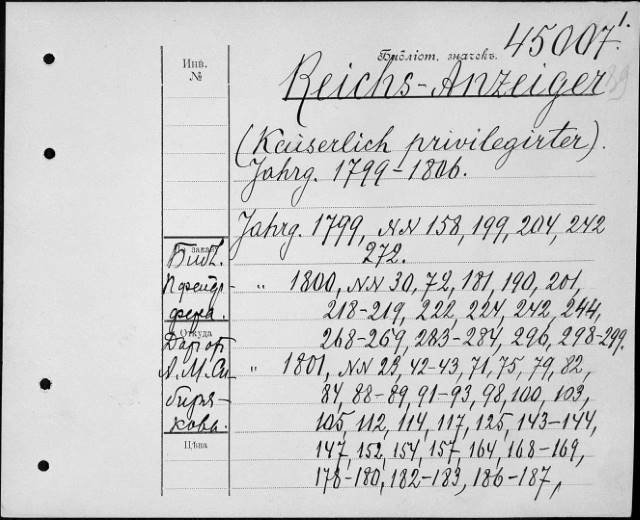 1.
45007.
Библіот. значекъ.
Инв.
№
Reichs-Anzeiger
89
(Kaiserlich privilegirter).
Jahrg. 1799-1806.
Jahrg. 1799, NN 158, 199, 204, 242
272.
Библ.
" 1800, NN 30, 72, 181, 190, 201,
218-219, 222, 224, 242, 244,
Откуда
268-269, 283-284, 296, 298-299.
Даръ отъ
А. М. Си-
биря-
кова.
" 1801, NN 23, 42-43, 71, 75, 79, 82,
84, 88-89, 91-93, 98, 100, 103,
105, 112, 114, 117, 125, 143-144,
Цѣна
147, 152, 154, 157, 164, 168-169,
178-180, 182-183, 186-187,